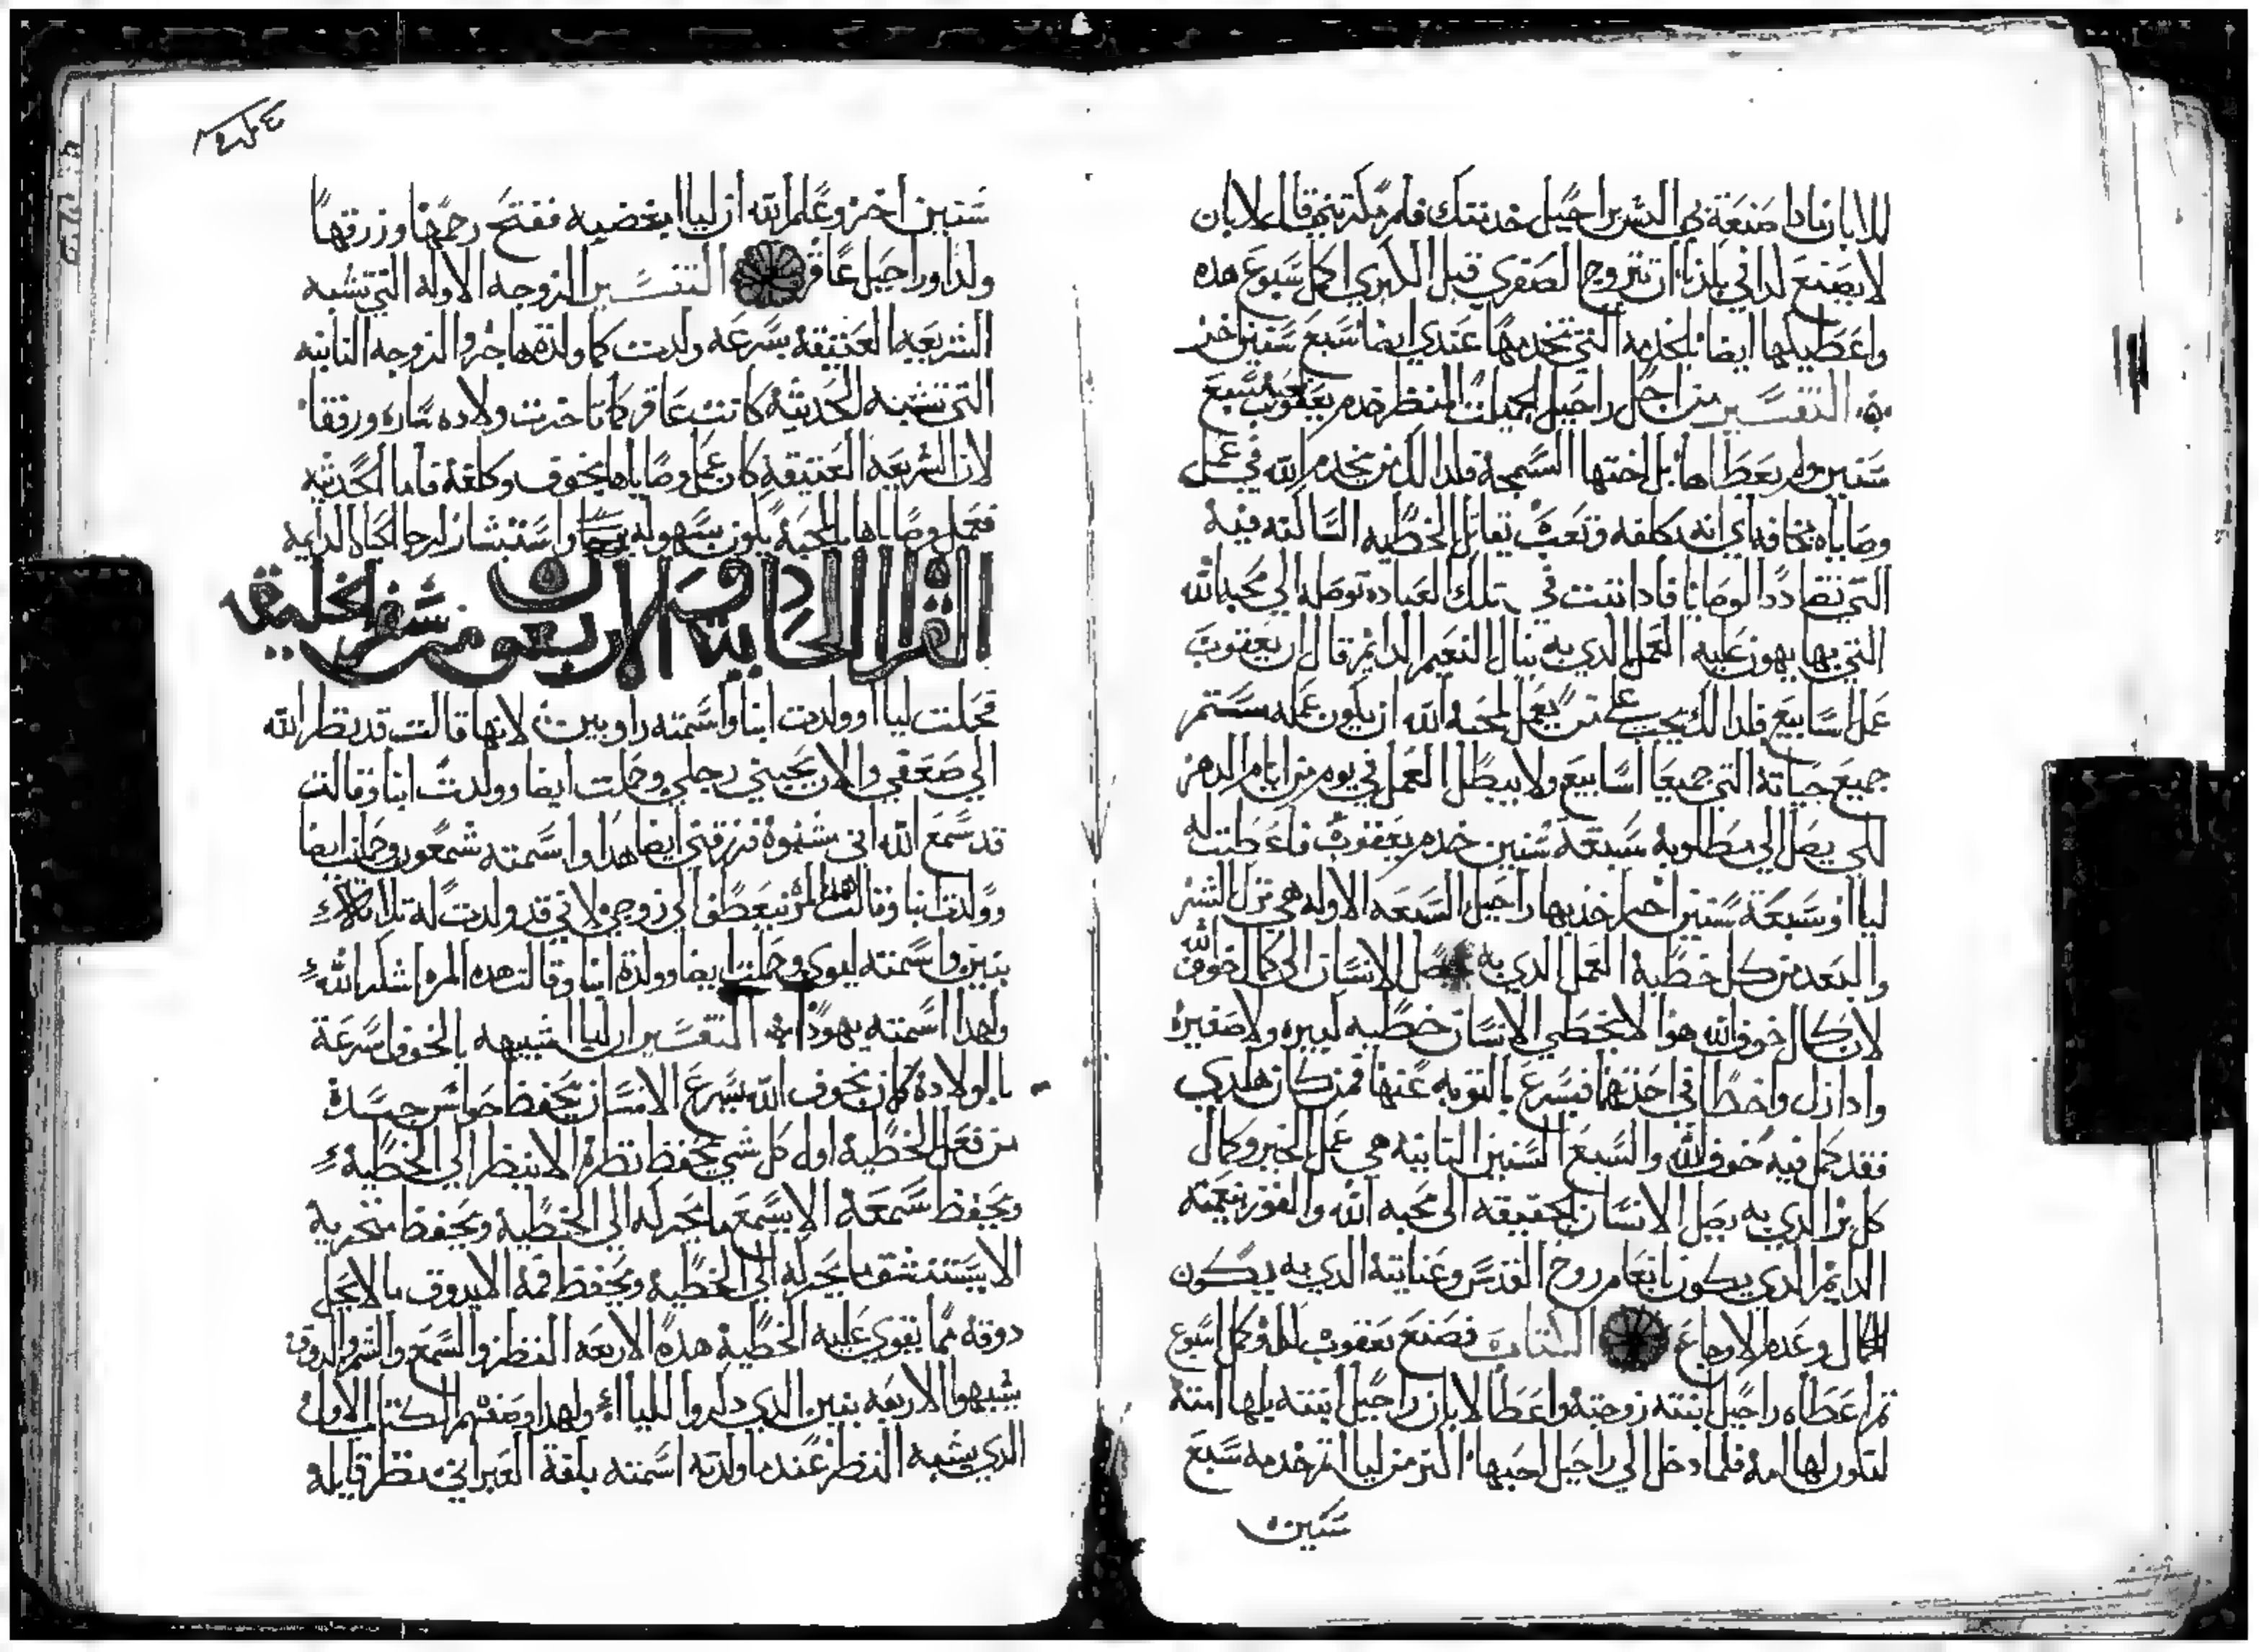 للابان مادا صنعة بي اليس براحيل خدمتك فلم مكرتني قال لابان
لا يصنع لدا في بلدنا ان تتزوج الصغري قبل الكبري اكمل سبوع هده
واعطيكها ايضا بالخدمه التي تخدمها عندي ايضا سبع سنين اخر
التفسير من اجل راحيل الجميلت المنظر خدم يعقوب سبع
سنين ولم يعطاها بل اختها السمجة فلدالك من يخدم الله في عمل
وصاياه بمخافه اي انه بكلفه وتعب يقاتل الخطيه الساكنه فيه
التي تضادد الوصايا فادا ثبت في تلك العباده توصله الي محبة الله
التي بها يهون عليه العمل الدي به ينال النعيم الدايم قال ان يعقوب
عمل سابيع فلدالك يجب علي من يعمل لمحبة الله ان يكون عمله مستمر
جميع حياته التي جميعا اسابيع ولا يبطل العمل في يوم من ايام الدهر
لكي يصل الي مطلوبه سبعة سنين خدم يعقوب فاعطيت له
ليا وسبعة سنين اخر خدم بها راحيل السبعه الاوله هي ترك الشر
والبعد من كل خطية العمل الدي به يصل الانسان الي كمال خوف الله
لان كمال خوف الله هو الا يخطي الانسان خطيه كبيره ولا صغيره
وادا زل واخطا في احدهما فيسرع بالتوبه عنها فمن كان هكدي
فقد كمل فيه خوف الله والسبع السنين التانيه هي عمل الخير وكمال
كل بر الدي به يصل الانسان بالحقيقه الي محبة الله والفوز بنعيمه
الدايم الدي يكون بانعام روح القدس وعنايته الدي به يكون
الكمال وعدم الاوجاع الكتاب فصنع يعقوب كدلك وكمل اسبوع
تم اعطاه راحيل ابنته زوجته واعطا لابان راحيل ابنته بلها امته
لتكون لها امة فلما دخل الي راحيل احبها اكتر من ليا تم خدمه سبع
سنين
سنين اخر وعلم الله ان ليا مبغضيه ففتح رحمها وزرقها
ولدا وراحيل عاقر التفسير الزوجه الاوله التي تشبه
الشريعه العتيقه بسرعه ولدت كما ولدة هاجر والزوجه التانيه
التي تشبه الحديثه كانت عاقر كما تاخرت ولاده ساره ورفقا
لان الشريعه العتيقه كان عمل وصاياها بخوف وكلفة فاما الحديثه
فعمل وصاياها بالمحبة يكون بسهوله وفرح واستبشار لرجا الحياه الدايمه
القراه الحاديه والاربعون من سفر الخليقه
فحملت ليا وولدت ابنا واسمته راوبين لانها قالت قد نظر الله
الي ضعفي والان يحبني رجلي وحملت ايضا وولدت ابنا وقالت
قد سمع الله اني مشنوة فرزقني ايضا هدا واسمته شمعون وحملت ايضا
وولدت ابنا وقالت هده المره ينعطف الي زوجي لاني قد ولدت له تلاتة
بنين واسمته ليوي وحملت ايضا وولدة ابنا وقالت هده المره اشكر الله
ولهدا اسمته يهودا التفسير ان ليا الشبيهه بالخوف اسرعة
بالولادة كمان بخوف الله يسرع الانسان بحفظ حواس جسده
من فعل الخطية اول كل شي يحفظ نظره الا ينظر الي الخطية
ويحفظ سمعة الا يسمع ما يجره الي الخطية ويحفظ منخريه
الا يستنشق ما يجره الي الخطيه ويحفظ فمة الا يدوق ما لا يحل
دوقه مما يقوي عليه الخطية هدة الاربعه النظر والسمع والشم والدوق
يشبهوا الاربعة بنين الدي دكروا لليا ولهدا وصفهم الكتاب الاول
الدي يشبه النظر عند ما ولدته اسمته بلغة العبراني نظر قايله